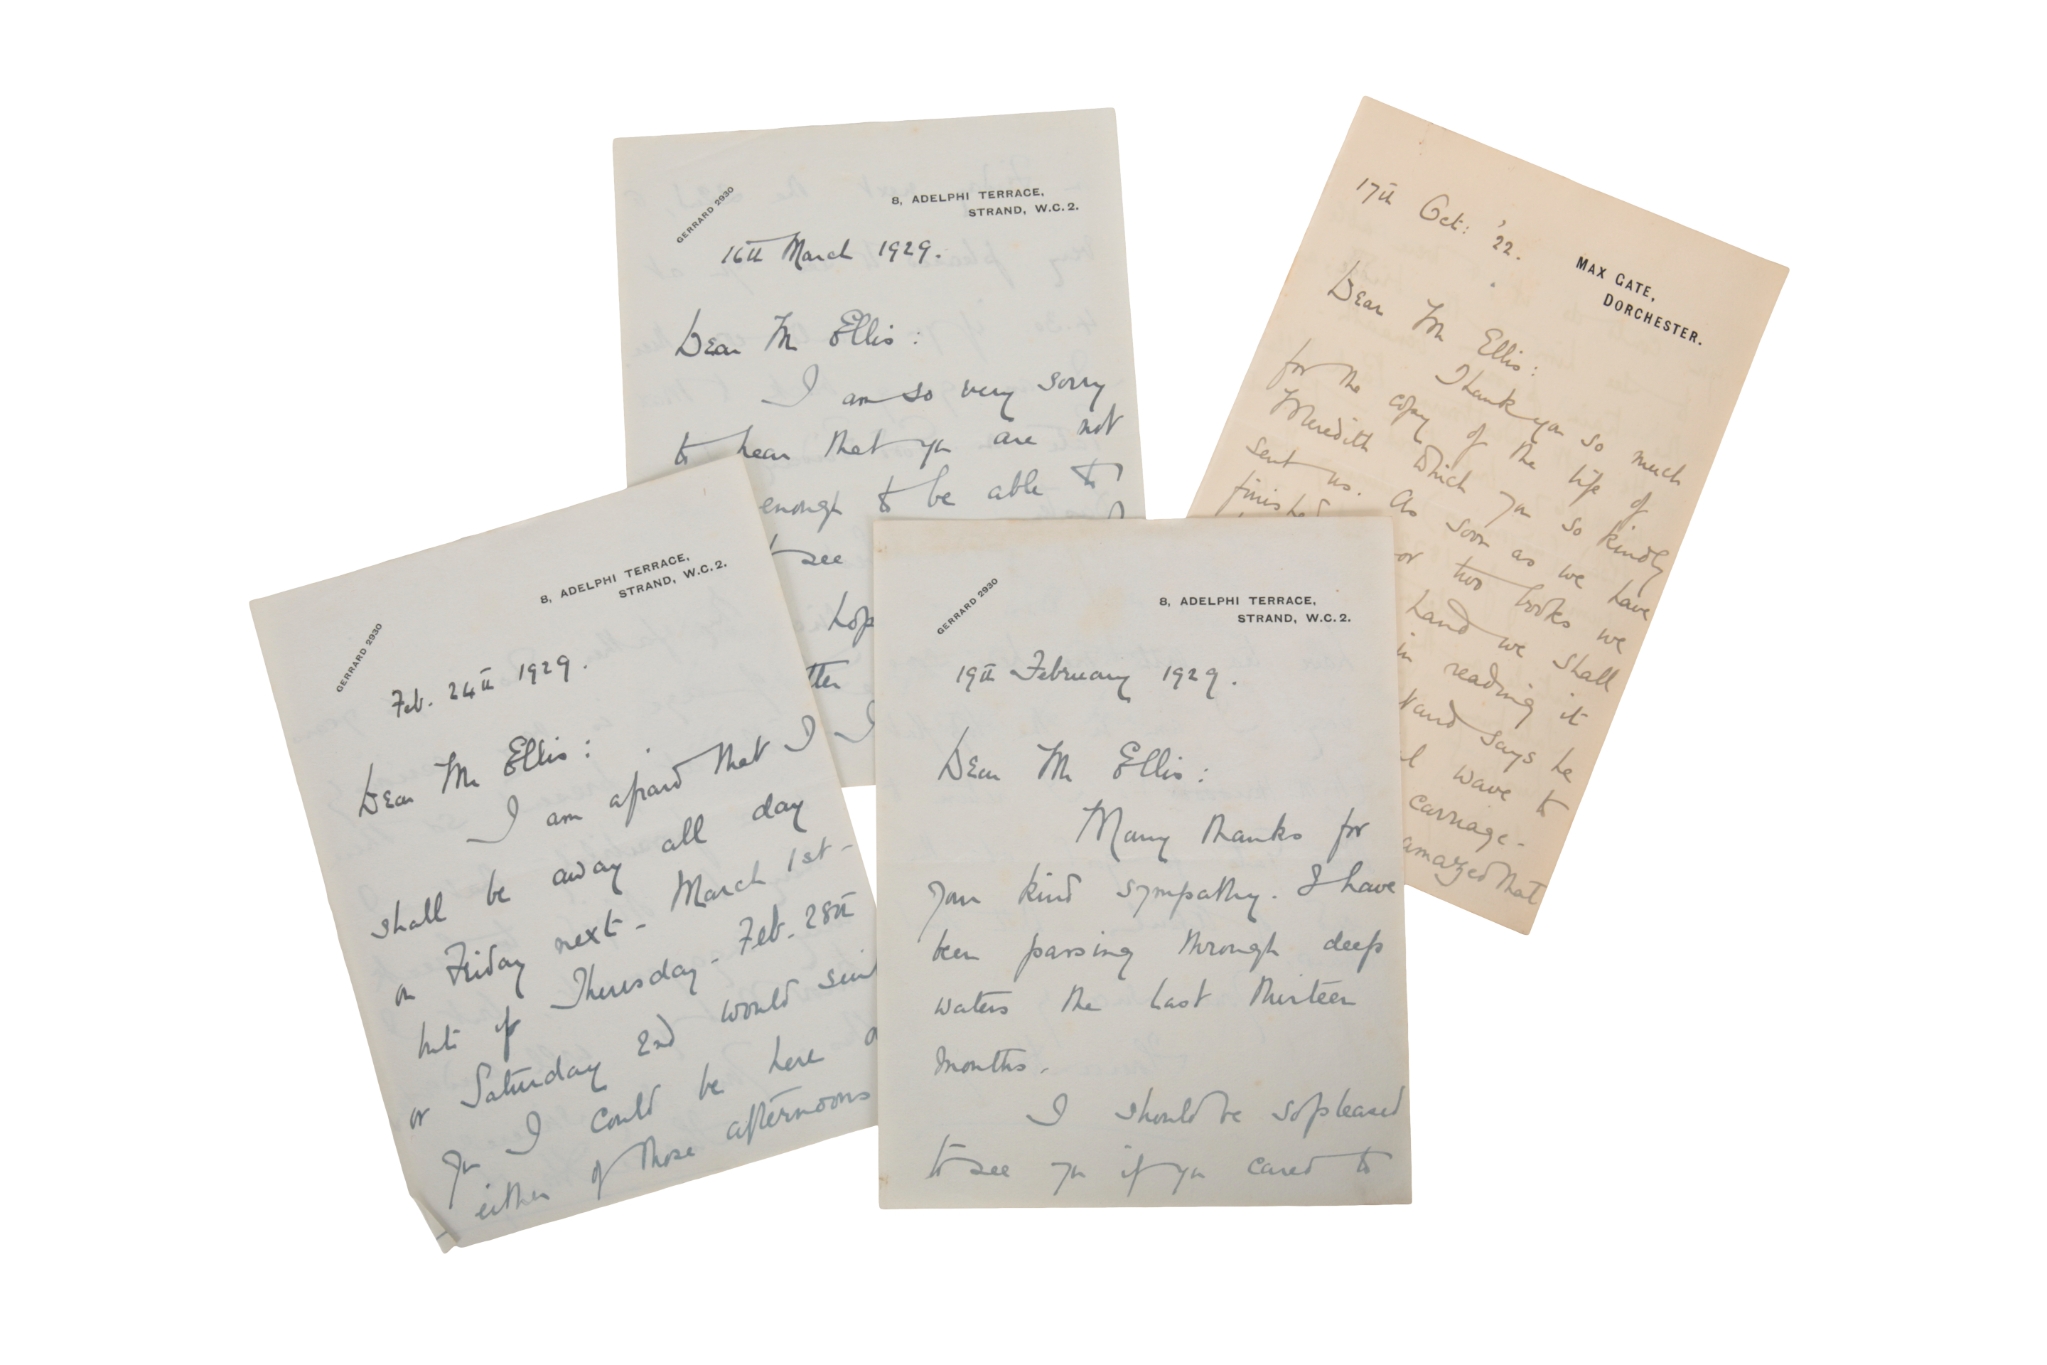 GERRARD 2930
8, ADELPHI TERRACE,
STRAND, W.C.2.
16th March 1929.
Dear Mr Ellis:
I am so very sorry
to hear that you are not
enough to be able to
I
to see
hop
tter
I
17th Oct: '22.
MAX GATE,
DORCHESTER.
Dear Mr Ellis:
Thank you so much
for the copy of the life of
Meredith which you so kindly
sent us. As soon as we have
finished
or two books we
hand we shall
in reading it
tand says he
l wave to
carriage-
amazed that
GERRARD 2930
8, ADELPHI TERRACE,
STRAND, W.C.2.
Feb. 24th 1929.
Dear Mr Ellis:
I am afraid that I
shall be away all day
on Friday next - March 1st -
but if Thursday - Feb. 28th
or Saturday 2nd would suit
you I could be here o
either of those afternoons
GERRARD 2930
8, ADELPHI TERRACE,
STRAND, W.C.2.
19th February 1929.
Dear Mr Ellis:
Many thanks for
your kind sympathy. I have
been passing through deep
waters the last thirteen
months.
I should be so pleased
to see you if you cared to